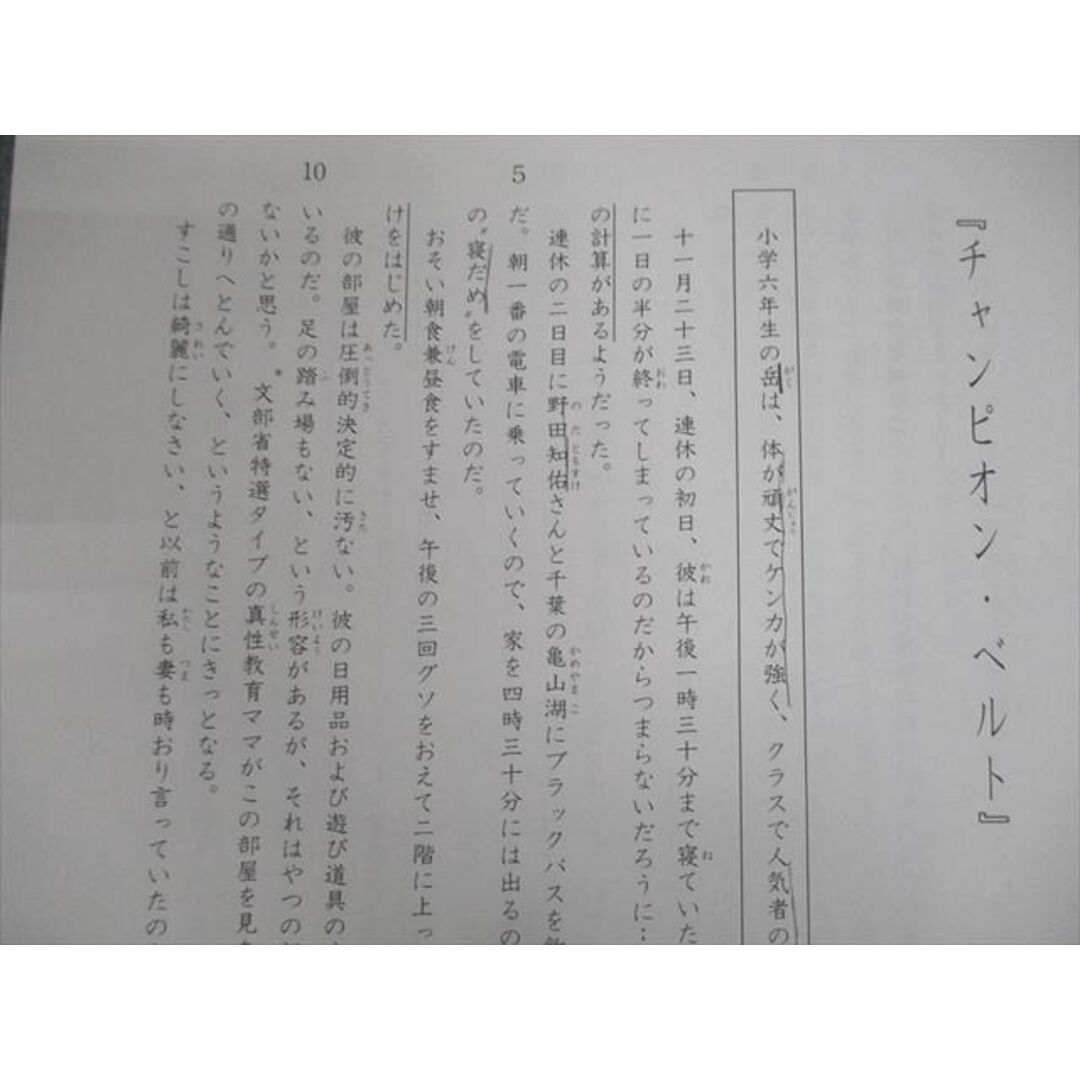 『チャンピオン・ベルト』
小学六年生の岳は、体が頑丈でケンカが強く、クラスで人気者の
十一月二十三日、連休の初日、彼は午後一時三十分まで寝ていた
に一日の半分が終ってしまっているのだからつまらないだろうに…
の計算があるようだった。
連休の二日目に野田知佑さんと千葉の亀山湖にブラックバスを
5
だ。朝一番の電車に乗っていくので、家を四時三十分には出るの
の〝寝だめ〟をしていたのだ。
おそい朝食兼昼食をすませ、午後の三回グソをおえて二階に上っ
けをはじめた。
彼の部屋は圧倒的決定的に汚ない。彼の日用品および遊び道具の
10
いるのだ。足の踏み場もない、という形容があるが、それはやつの
ないかと思う。*文部省特選タイプの真性教育ママがこの部屋を見
の通りへとんでいく、というようなことにきっとなる。
すこしは綺麗にしなさい、と以前は私も妻も時おり言っていたの